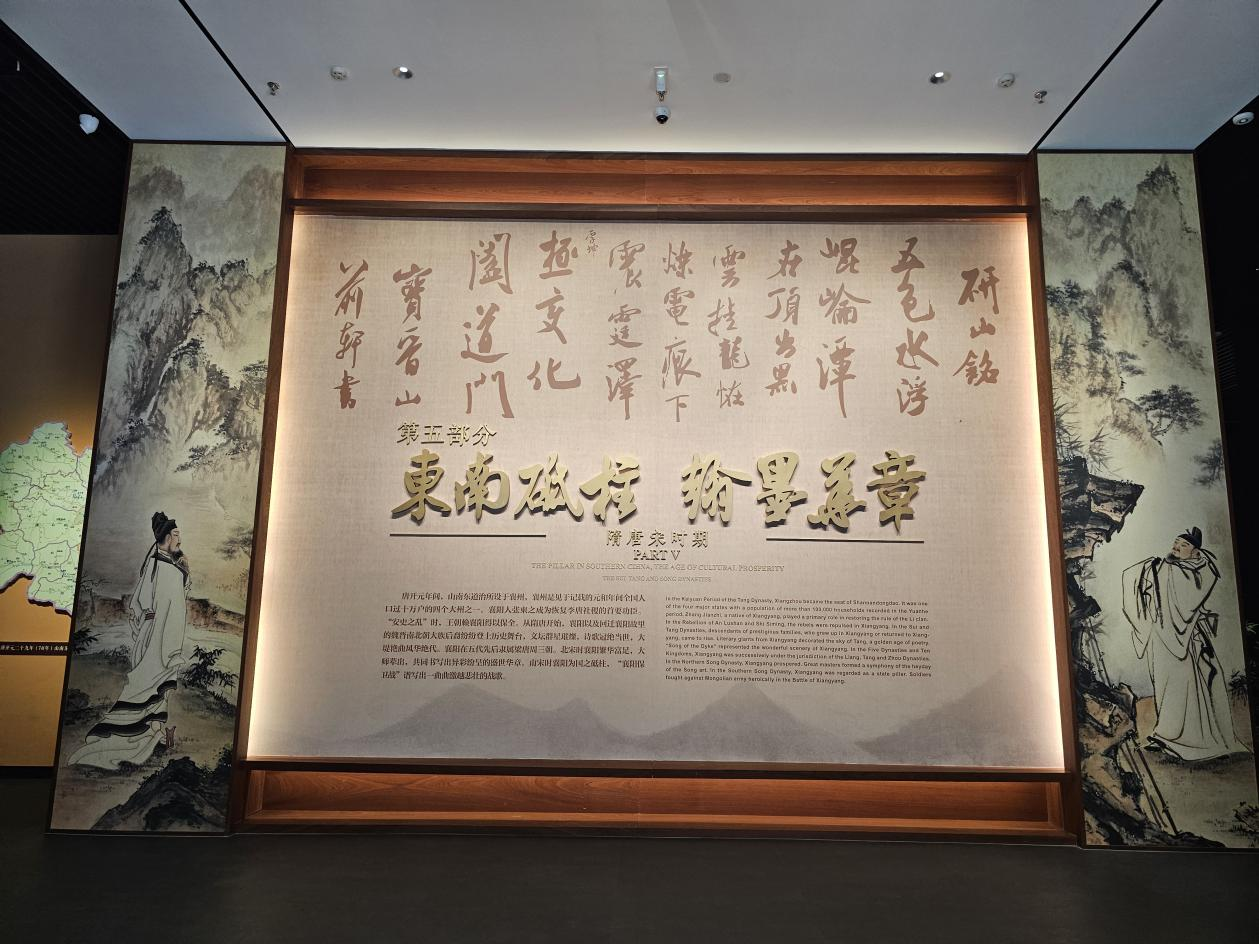 研山銘
五色水浮
崐崘潭
在頂出黑
雲挂龍怪
爍電痕下
震霆澤
厚
極變化
闔道門
寶晋山
前軒書
第五部分
東南砥柱 翰墨華章
隋唐宋时期
PART V
THE PILLAR IN SOUTHERN CIHNA, THE AGE OF CULTURAL PROSPERITY
THE SUI, TANG AND SONG DYNASTIES
唐开元年间，山南东道治所设于襄州，襄州是见于记载的元和年间全国人
口过十万户的四个大州之一。襄阳人张柬之成为恢复李唐社稷的首要功臣。
“安史之乱”时，王朝赖襄阳得以保全。从隋唐开始，襄阳以及回迁襄阳故里
的魏晋南北朝大族后裔纷纷登上历史舞台，文坛群星璀璨，诗歌冠绝当世，大
堤艳曲风华绝代。襄阳在五代先后隶属梁唐周三朝。北宋时襄阳繁华富足，大
师辈出，共同书写出异彩纷呈的盛世华章。南宋时襄阳为国之砥柱，“襄阳保
卫战”谱写出一曲曲激越悲壮的战歌。
In the Kaiyuan Period of the Tang Dynasty, Xiangzhou became the seat of Shannandongdao. It was one
of the four major states with a population of more than 100,000 households recorded in the Yuanhe
period. Zhang Jianzhi, a native of Xiangyang, played a primary role in restoring the rule of the Li clan.
In the Rebellion of An Lushan and Shi Siming, the rebels were repulsed in Xiangyang. In the Sui and
Tang Dynasties, descendants of prestigious families, who grew up in Xiangyang or returned to Xiang-
yang, came to rise. Literary giants from Xiangyang decorated the sky of Tang, a golden age of poetry.
"Song of the Dyke" represented the wonderful scenery of Xiangyang. In the Five Dynasties and Ten
Kingdoms, Xiangyang was successively under the jurisdiction of the Liang, Tang and Zhou Dynasties.
In the Northern Song Dynasty, Xiangyang prospered. Great masters formed a symphony of the heyday
of the Song art. In the Southern Song Dynasty, Xiangyang was regarded as a state pillar. Soldiers
fought against Mongolian army heroically in the Battle of Xiangyang.